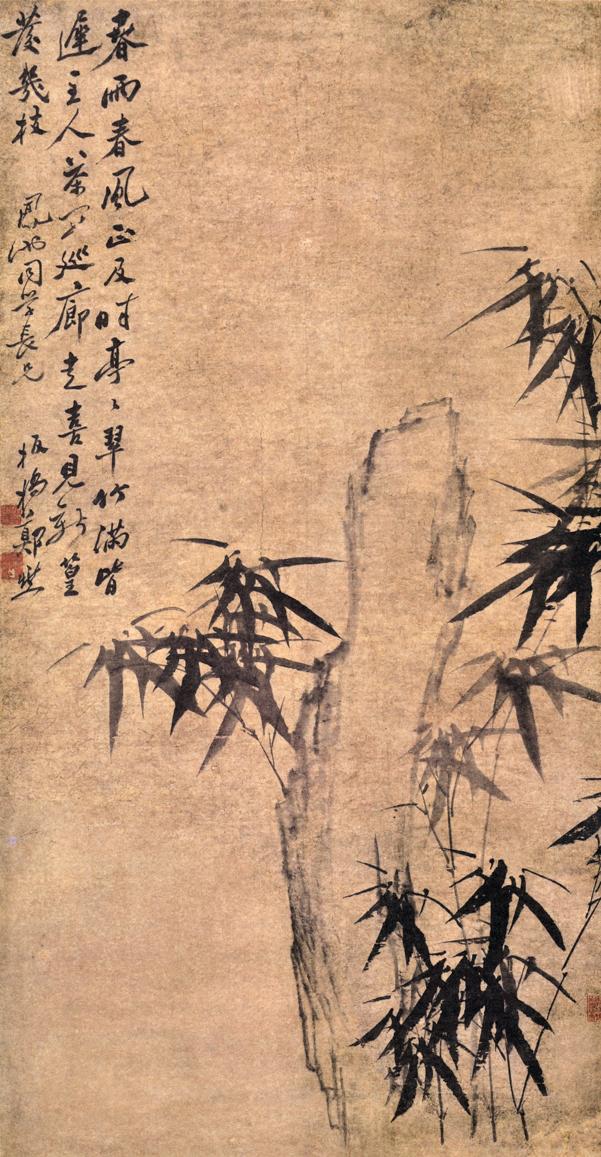 春雨春風正及時亭亭翠竹滿階
遲主人茶罷巡廊走喜見新篁
發幾枝 鳳翔同學長兄
板橋鄭燮